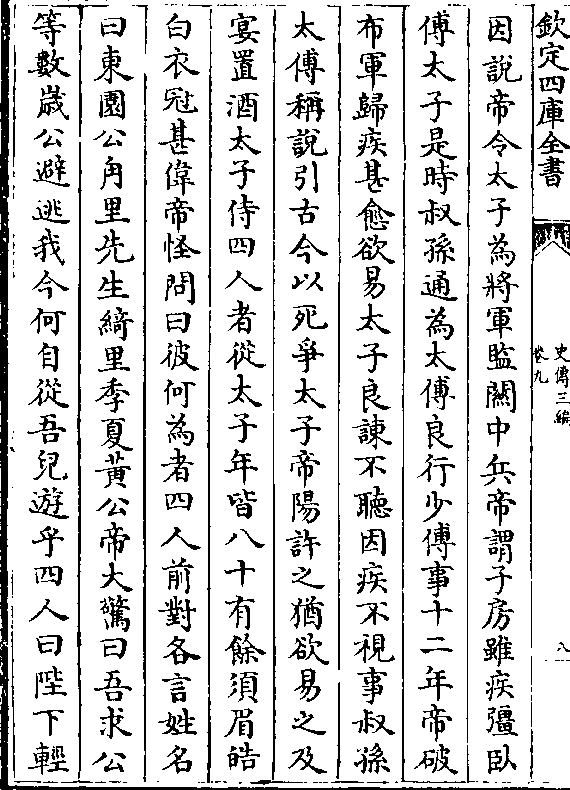 欽定四庫全書
史傳三編
卷九
八
因說帝令太子為將軍監關中兵帝謂子房雖疾彊臥
傅太子是時叔孫通為太傅良行少傅事十二年帝破
布軍歸疾甚愈欲易太子良諫不聽因疾不視事叔孫
太傅稱說引古今以死爭太子帝陽許之猶欲易之及
宴置酒太子侍四人者從太子年皆八十有餘須眉皓
白衣冠甚偉帝怪問曰彼何為者四人前對各言姓名
曰東園公角里先生綺里季夏黃公帝大驚曰吾求公
等數歲公避逃我今何自從吾兒遊乎四人曰陛下輕